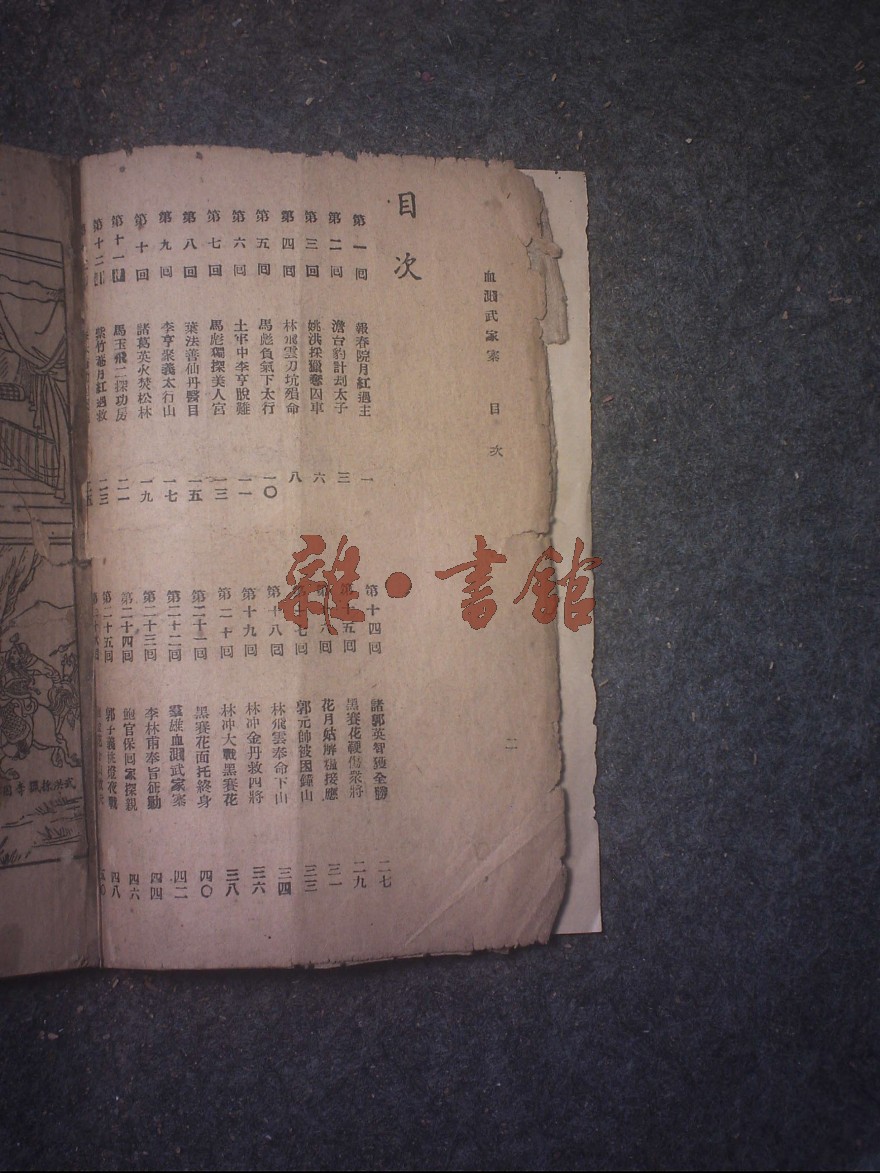 血濺武家寨 目次
二
目次
第一回 報春院月紅遇主 一
第二回 澹台豹計刦太子 三
第三回 姚洪採獵奪囚車 六
第四回 林飛雲刀坑殞命 八
第五回 馬彪負氣下太行 一〇
第六回 土牢中李亨脫難 一一
第七回 馬彪瑒探美人宮 一三
第八回 葉法善仙丹醫目 一五
第九回 李亨聚義太行山 一七
第十回 諸葛英火焚松林 一九
第十一回 馬玉飛二探功房 二一
第十二回 紫竹菴月紅遇救 二三
第十四回 諸郭英智獲全勝 二七
第十五回 黑賽花鞭傷衆將 二九
第十六回 花月姑解糧接應 三一
第十七回 郭元帥被困鐘山 三三
第十八回 林飛雲奉命下山 三四
第十九回 林冲金丹救四將 三六
第二十回 林冲大戰黑賽花 三八
第二十一回 黑賽花面托終身 四〇
第二十二回 羣雄血濺武家寨 四二
第二十三回 李林甫奉旨征勦 四四
第二十四回 鮑官保回家探親 四六
第二十五回 郭子義挑燈夜戰 四八
雜·書館